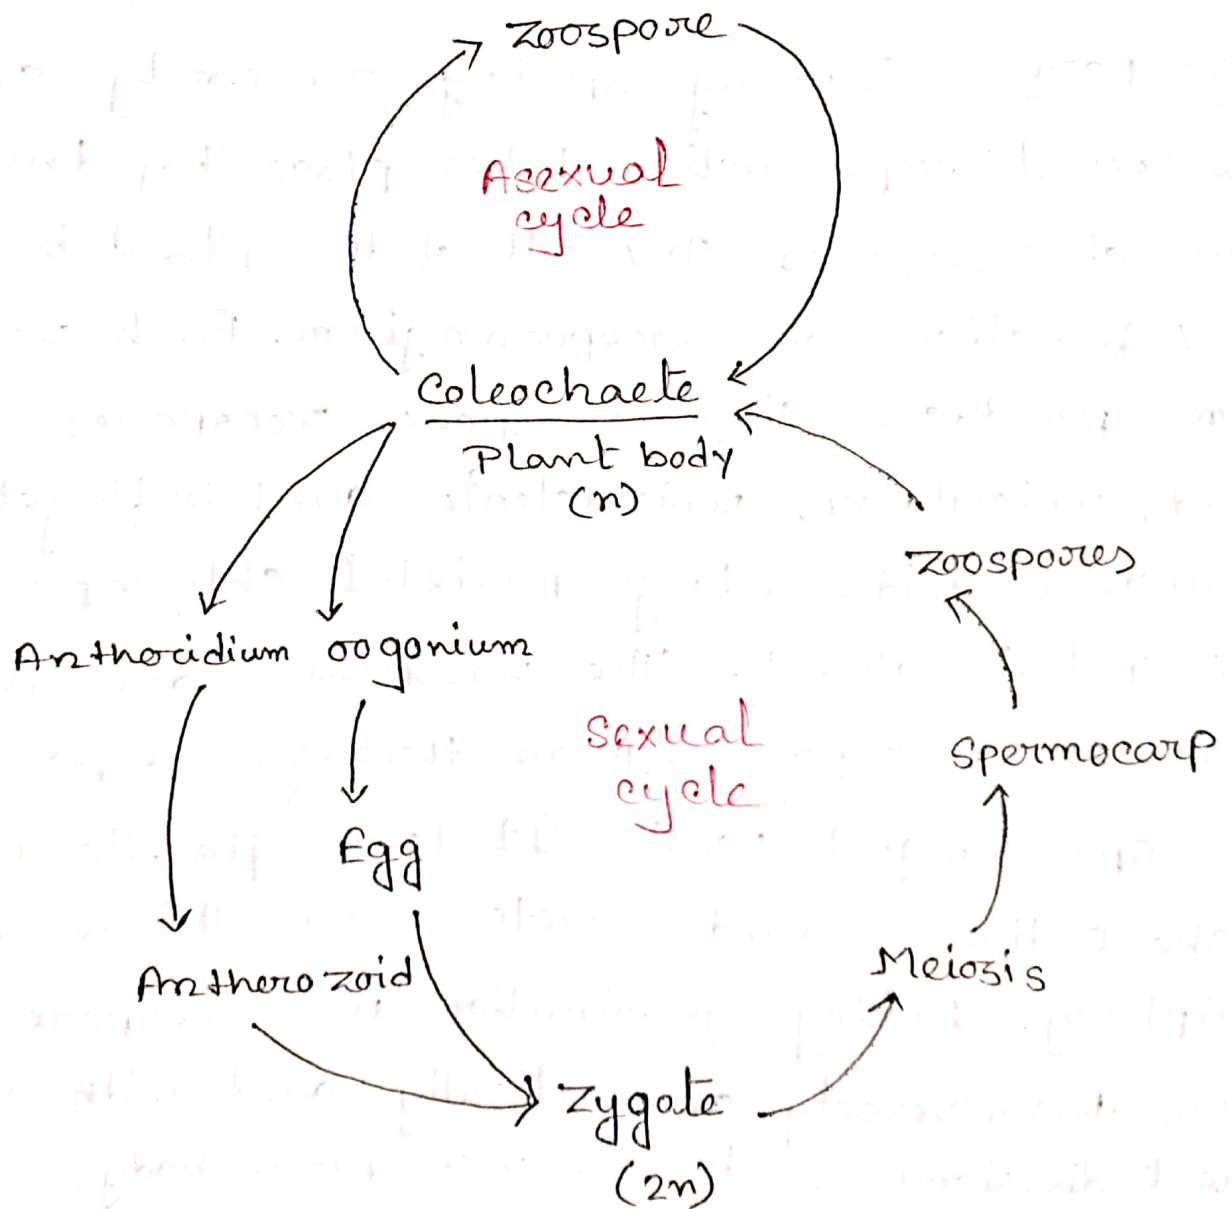 Zoospore
Asexual
cycle
Coleochaete
Plant body
(n)
Zoospores
Anthocidium oogonium
Sexual
cycle
Spermocarp
Egg
Meiosis
Antherozoid
Zygate
(2n)